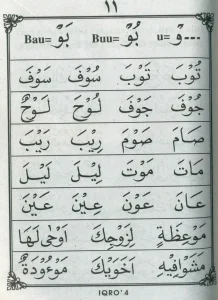 ١١
---وْ =u بُوْ =Buu بَوْ =Bau
تُوْبَ تَوْبَ سُوْفَ سَوْفَ
جُوْفَ جَوْفَ لُوْحَ لَوْحٌ
صَامَ صَوْمَ رِيْبَ رَيْبَ
مَاتَ مَوْتَ لِيْلَ لَيْلَ
عَانَ عَوْنَ عِيْنَ عَيْنَ
مَوْعِظَةٍ لِزَوْجِكَ اَوْحٰى لَهَا
مَشَوْافِيْهِ اَخَوَيْكَ مَوْءُوْدَةُ
IQRO' 4